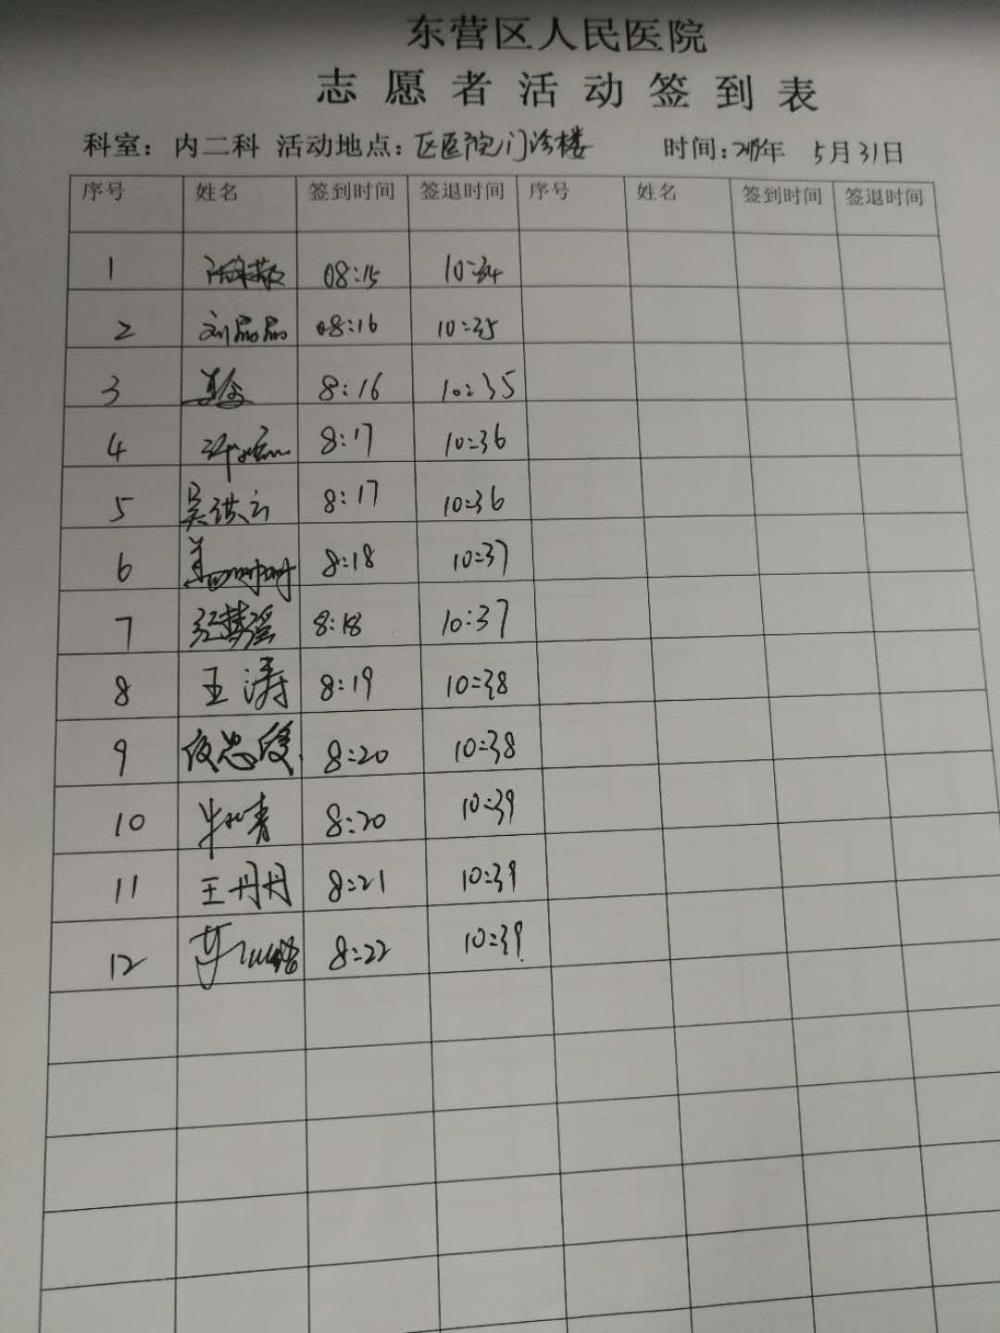 东营区人民医院
志愿者活动签到表
科室：内二科 活动地点：区医院门诊楼 时间：年 5月31日
序号 姓名 签到时间 签退时间 序号 姓名 签到时间 签退时间
1 08:15 10:34
2 刘晶晶 08:16 10:35
3 8:16 10:35
4 8:17 10:36
5 吴洪云 8:17 10:36
6 8:18 10:37
7 8:18 10:37
8 王涛 8:19 10:38
9 8:20 10:38
10 8:20 10:39
11 王丹丹 8:21 10:39
12 8:22 10:39